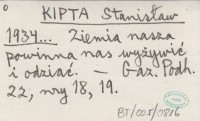 KIPTA Stanisław
1934... Ziemia nasza
powinna nas wyżywić
i odziać. — Gaz. Podh.
22, nry 18, 19.
BT/005/0816